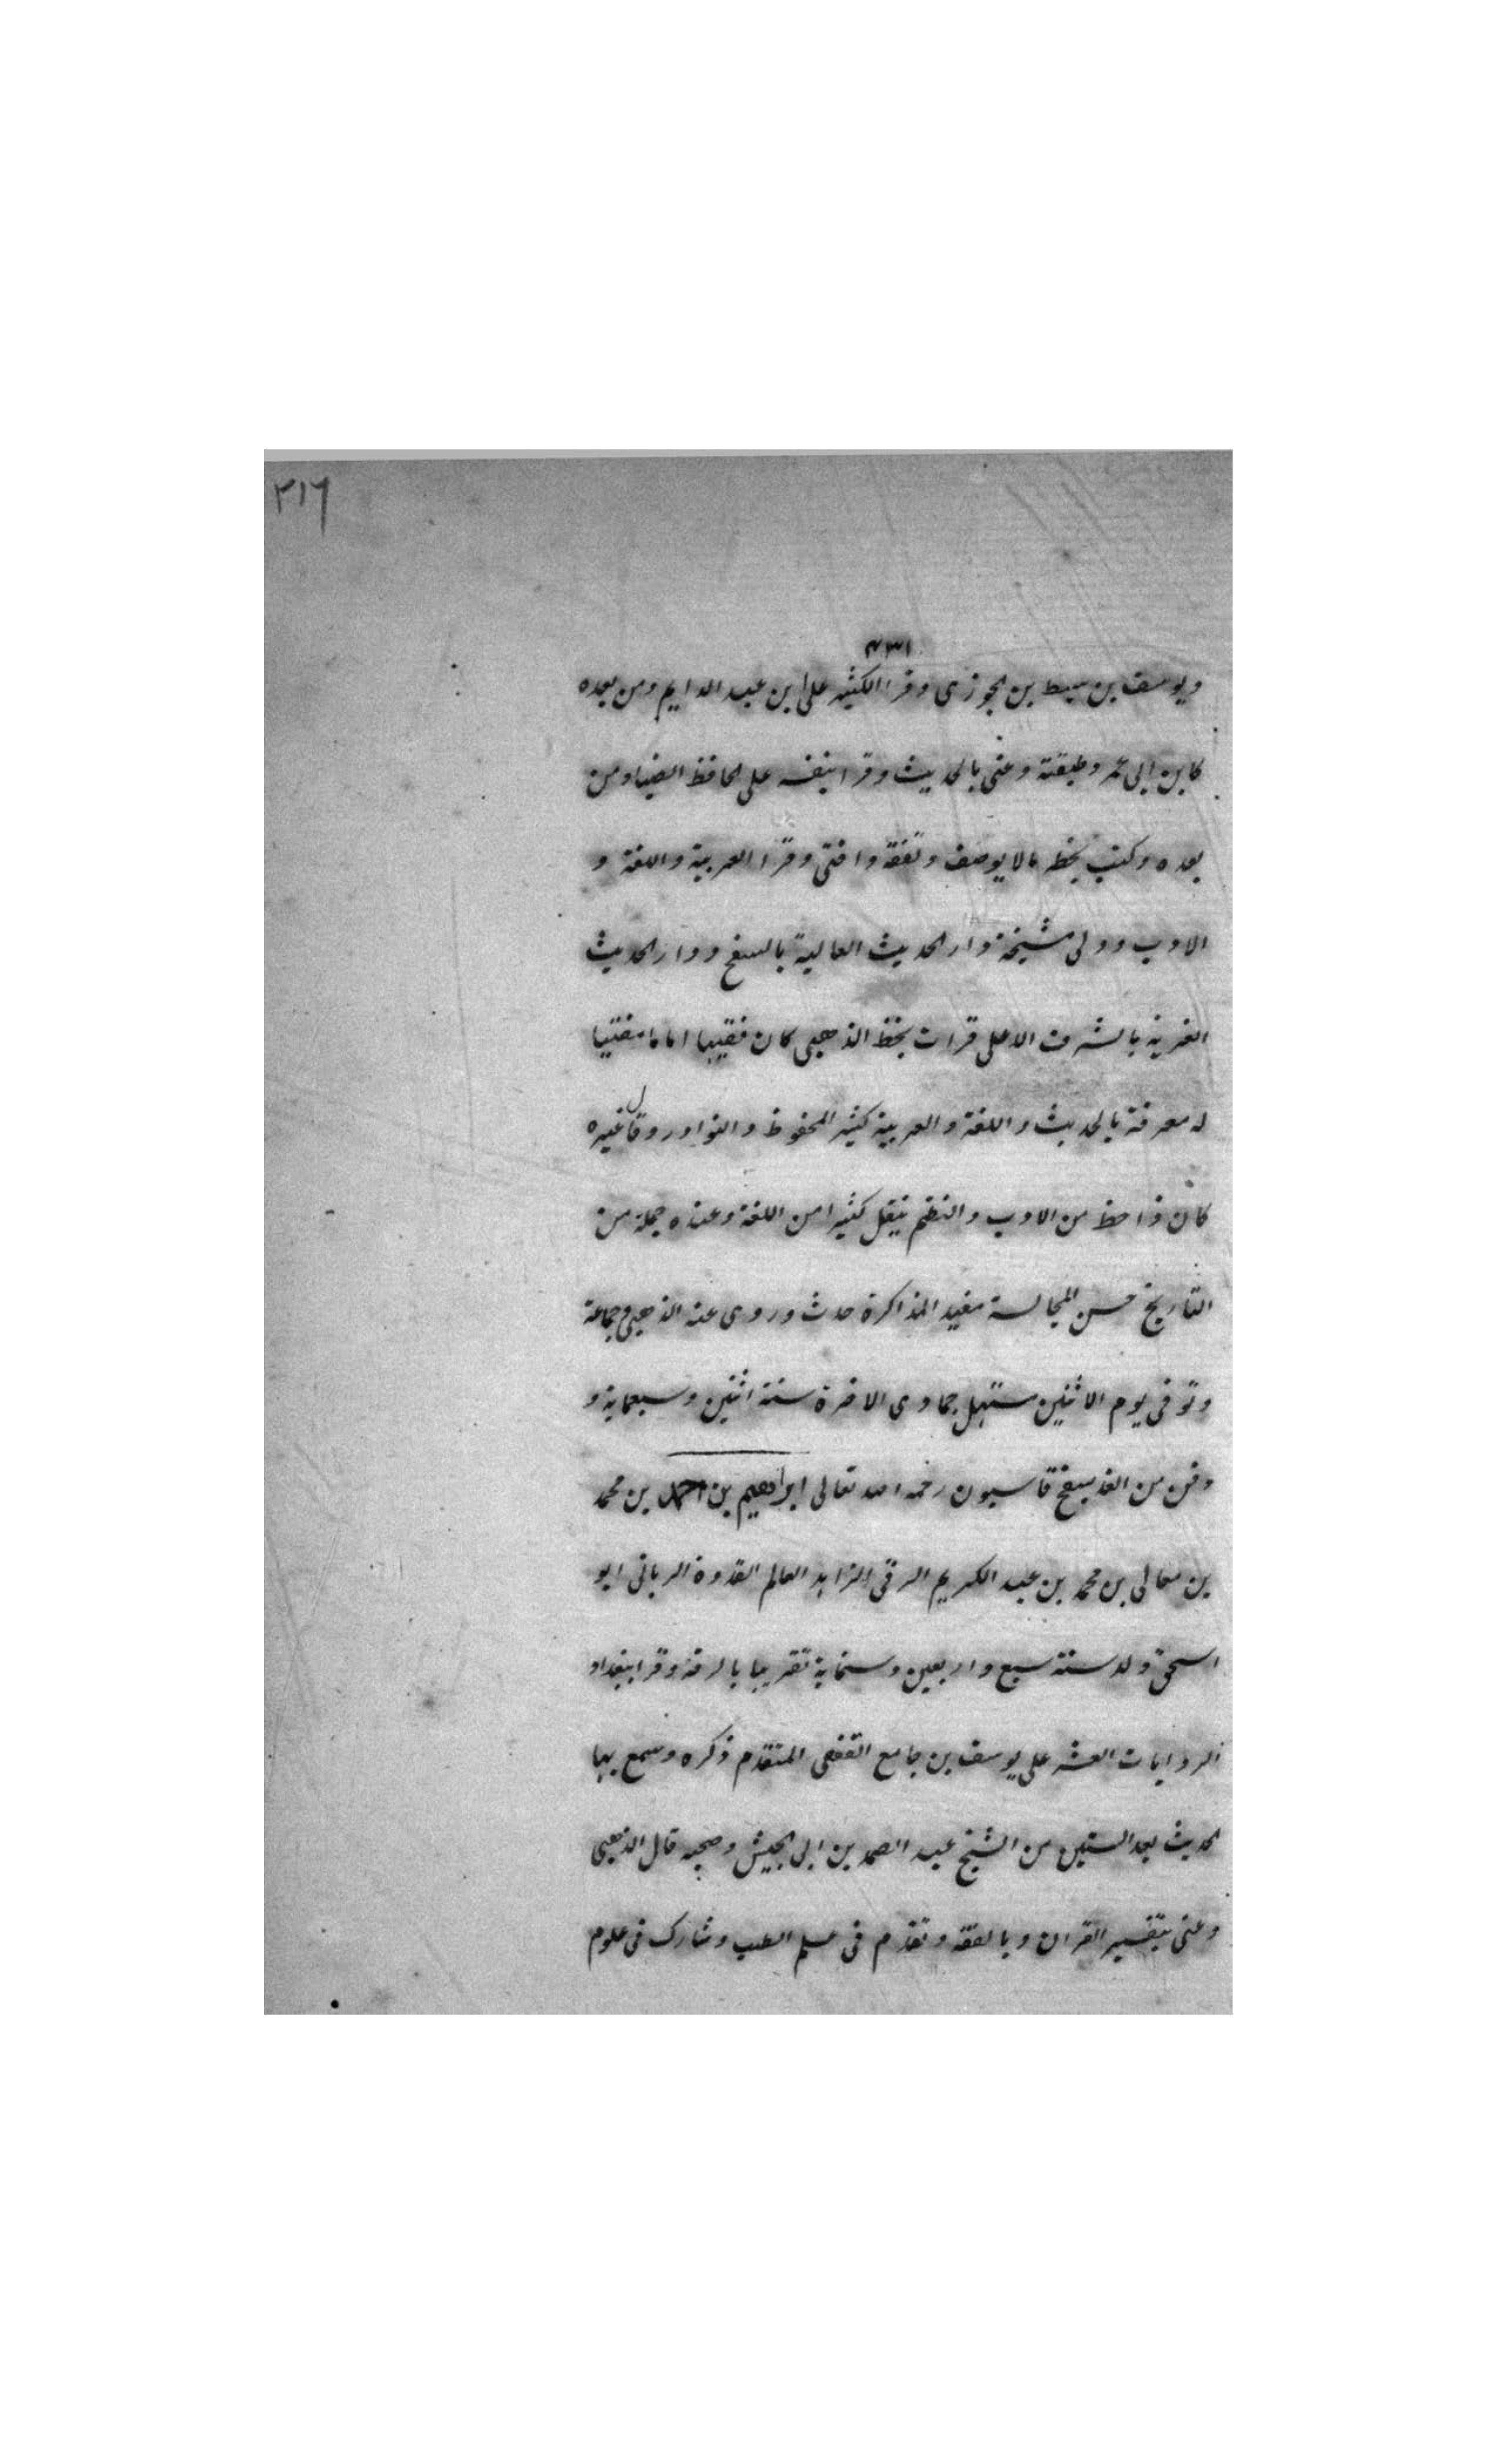 ٢١٦
٤٣١
ويوسف بن سبط بن الجوزى وقرا الكثير على ابن عبد الدايم ومن بعده
كابن ابى عمر وطبقته وعنى بالحديث وقرا بنفسه على الحافظ الضياء ومن
بعده وكتب بخطه مالا يوصف وتفقه وافتى وقرا العربية واللغة و
الادب وولى مشيخة دار الحديث العالية بالسفح ودار الحديث
العزية بالشرف الاعلى قرات بخط الذهبى كان فقيها اماما مفتيا
له معرفة بالحديث واللغة والعربية كثير المحفوظ والنوادر وقال غيره
كان ذا حظ من الادب والنظم ينقل كثيرا من اللغة وعنده جملة من
التاريخ حسن المجالسة مفيد المذاكرة حدث وروى عنه الذهبى وجماعة
وتوفى يوم الاثنين مستهل جمادى الاخرة سنة اثنين وسبعماية و
دفن من الغد بسفح قاسيون رحمه الله تعالى ابراهيم بن احمد بن محمد
بن معالى بن محمد بن عبد الكريم الرقى الزاهد العالم القدوة الربانى ابو
اسحق ولد سنة سبع واربعين وستماية تقريبا بالرقة وقرا ببغداد
الروايات العشر على يوسف بن جامع القفصى المتقدم ذكره وسمع بها
الحديث بعد الستين من الشيخ عبد الصمد بن ابى الجيش وصحبه قال الذهبى
وعنى بتفسير القران وبالفقه وتقدم فى علم الطب وشارك فى علوم